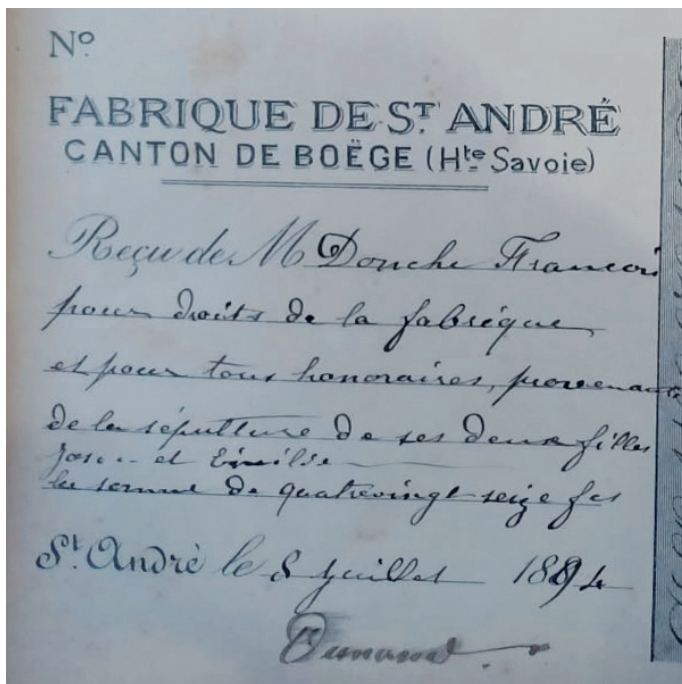 Nº
FABRIQUE DE Sᵀ ANDRÉ
CANTON DE BOËGE (Hᵗᵉ Savoie)
Reçu de M Donche Francois
pour droits de la fabrique
et pour tous honoraires, provenants
de la sépulture de ses deux filles
Jos... et Emilie
la somme de quatrevingt-seize fcs
Sᵗ. André le 8 Juillet 1894